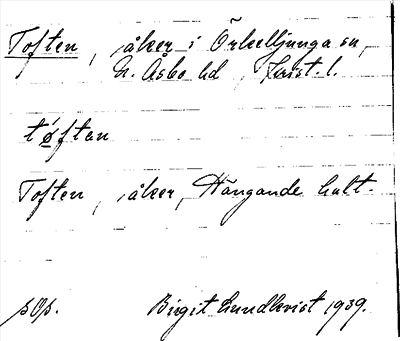 Toften, åker i Örkelljunga sn,
N. Åsbo hd, Krist. l.
tøftan
Toften, åker, Hängande hult.
sOp. Birgit Lundkvist 1939.